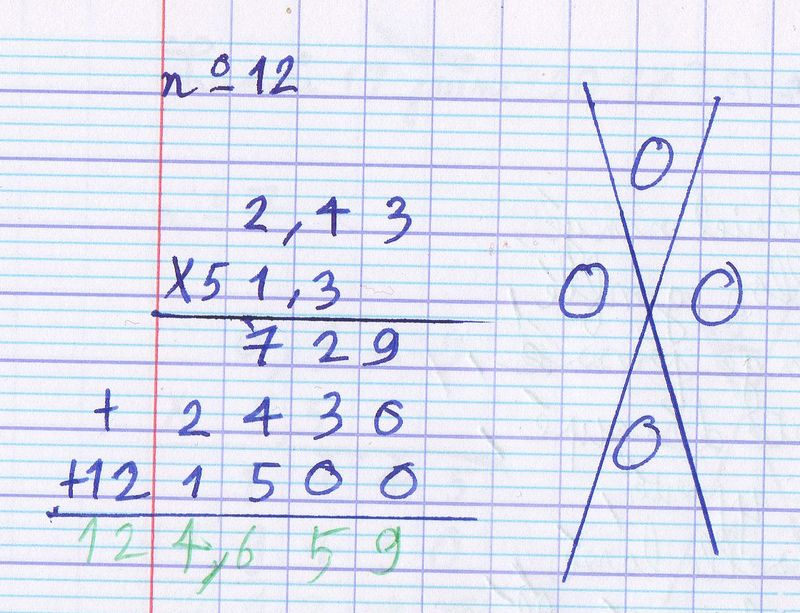 n º 12
2,43
X51,3
729
+ 2430
+121500
124,659
0
0 0
0